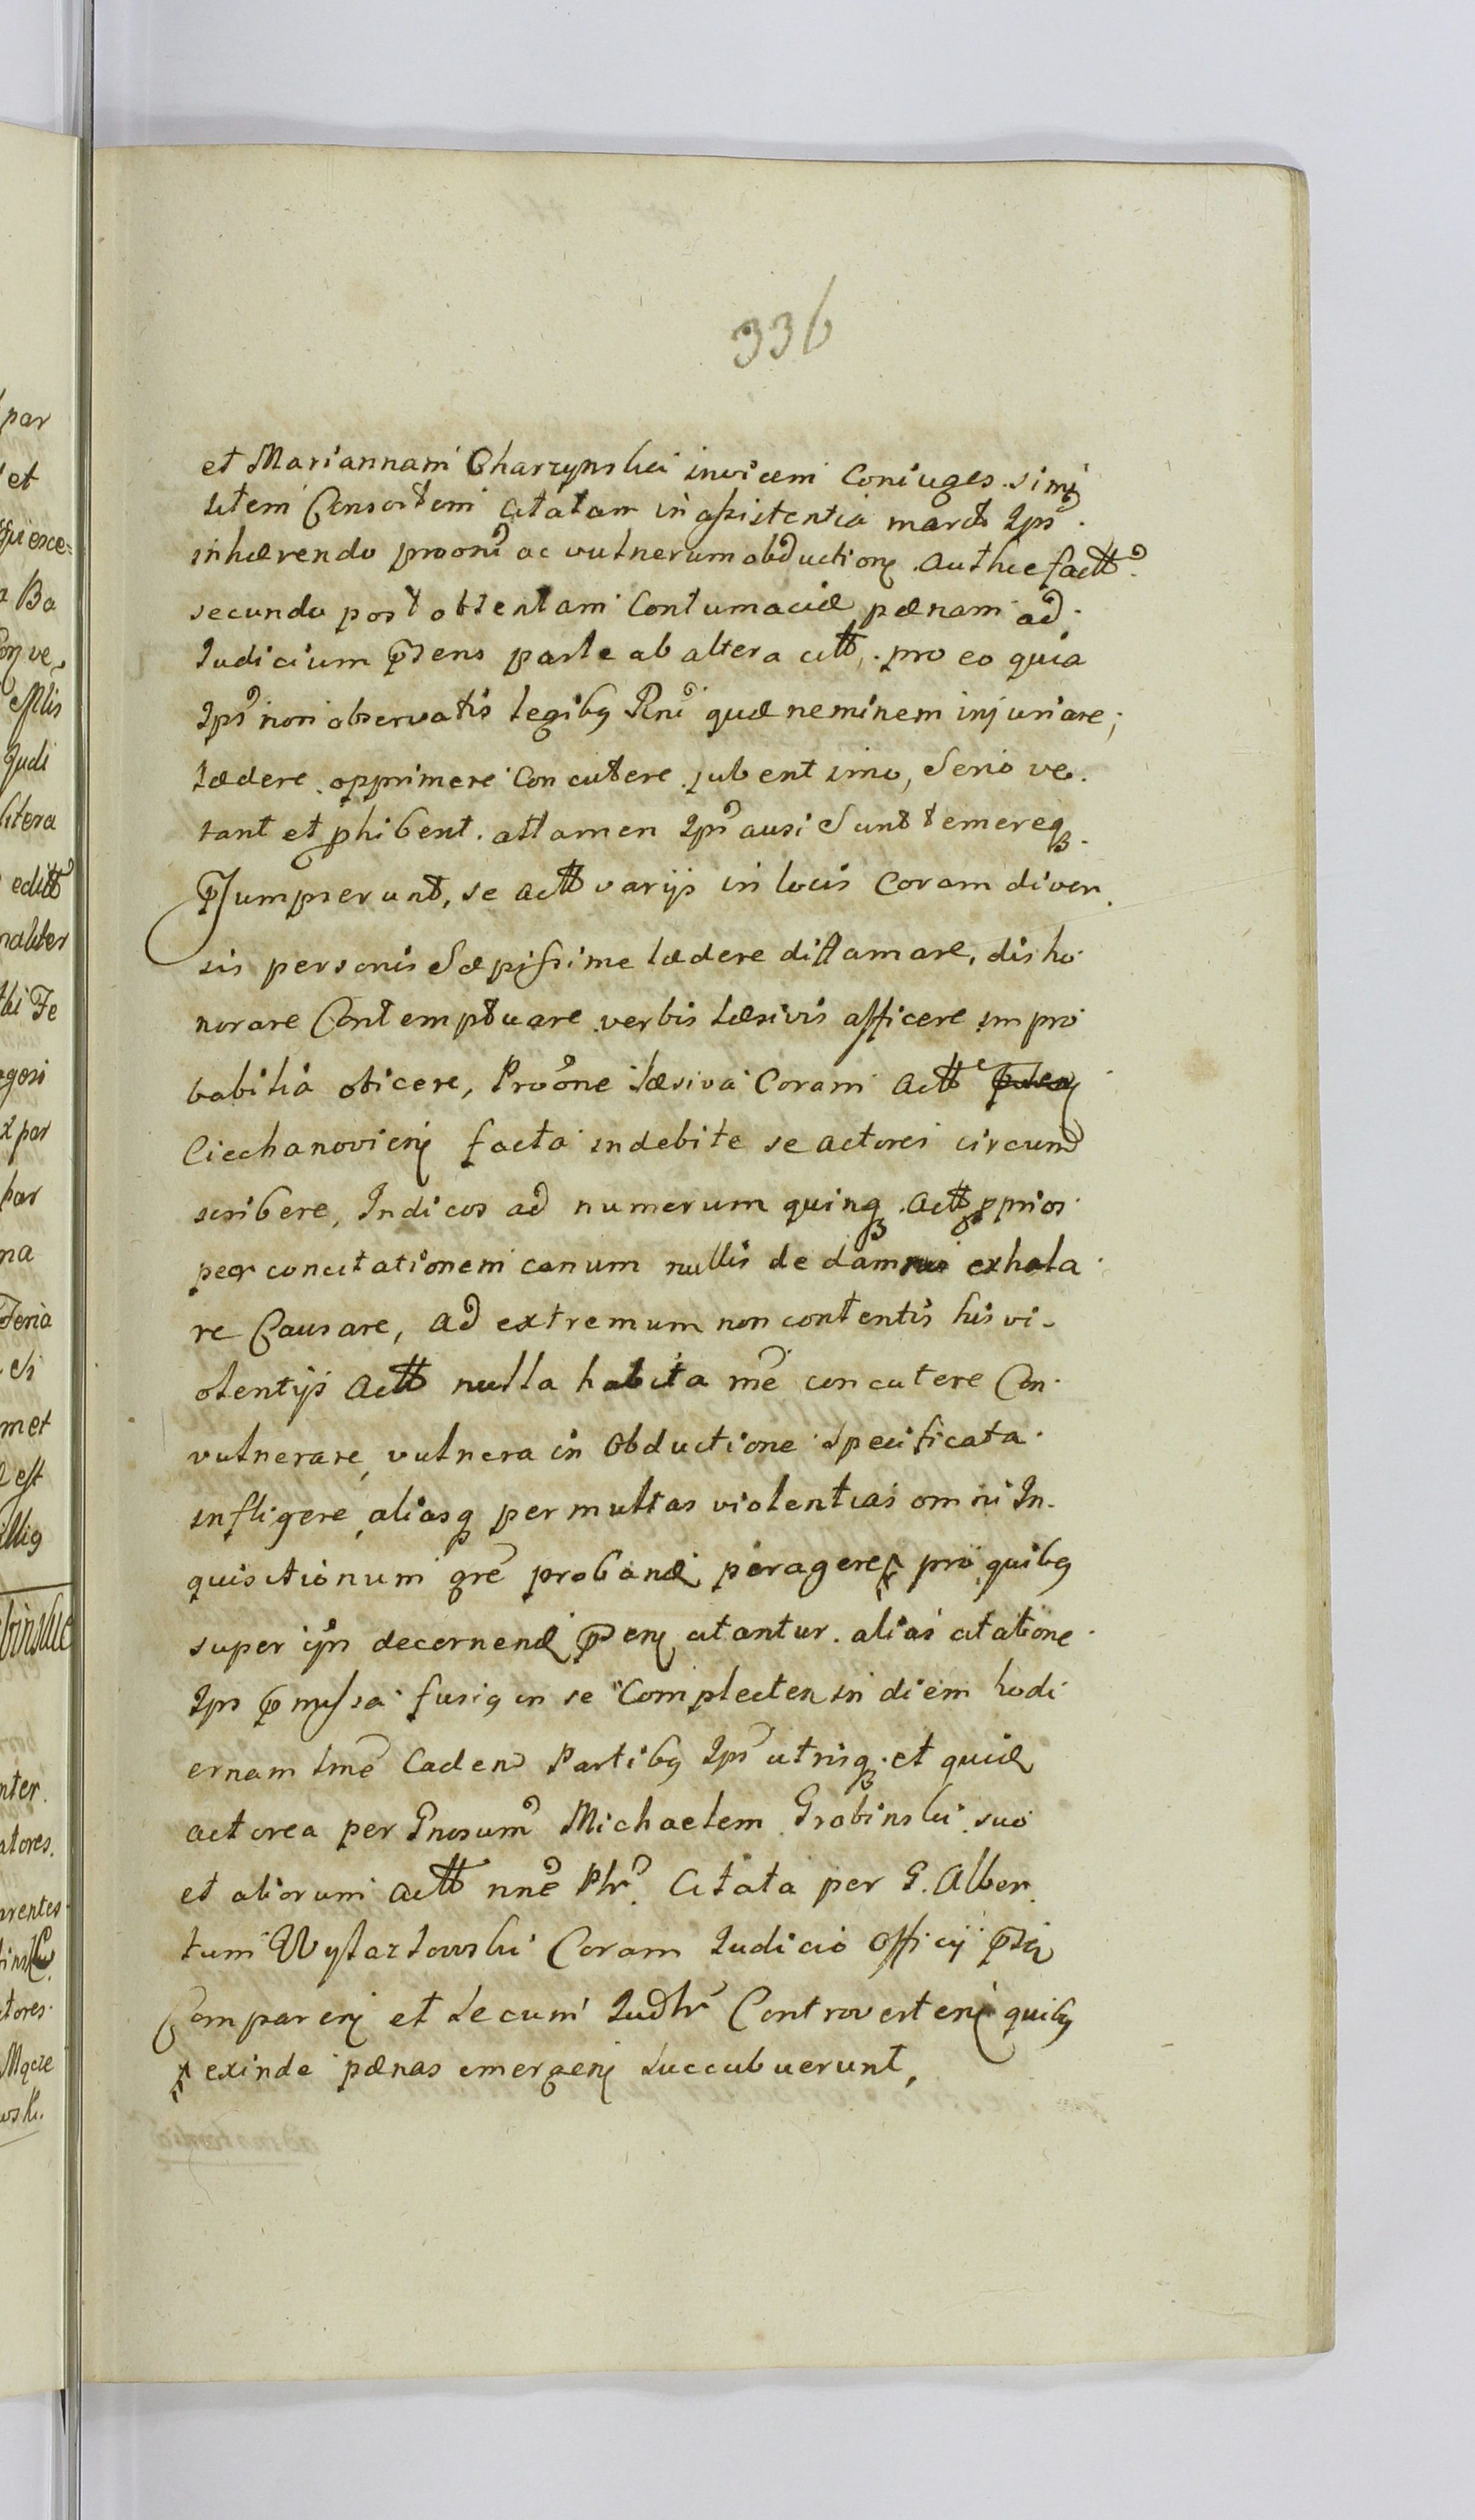 336
et Mariannam Charzynski invicem Coniuges simq
litem Consortem citatam in assistentia mariti Ips
inhærendo proōni ac vulnerum obductioni Authce factt
secundo post obtentam Contumaciæ pænam ad
Iudicium pns parte ab altera citt. pro eo quia
Ipsi non observatis legibq Rni quæ neminem injuriare,
lædere opprimere Concutere jubent imo, Serio ve
tant et phibent. attamen Ipsi ausi Sunt temereqz
psumpserunt, se actt varijs in locis Coram diver
sis personis Sæpissime lædere diffamare, disho
norare Contemptuare verbis læsivis afficere impro
babilia obicere, Proone læsiva Coram Actt
Ciechanovien facta indebite se actorei circum
scribere, Indicos ad numerum quinqz actt pprios
per concitationem canum nullis de damno exhala
re Causare, ad extremum non contentis his vi
olentijs actt nulla habita me concutere Con
vulnerare, vulnera in Obductione Specificata
infligere, aliasq permultas violentias omni In
quisitionum gre proband peragere pro quibq
super ijs decernend pen citantur. alias citatione
Ips pmissa fusiq in se Complecten in diem hodi
ernam lme Caden Partibq Ips utrisqz et quid
actorea per Gnosum Michaelem Grabinski suo
et aliorum actt nne Phr. Citata per G. Alber
tum Wystazowski Coram Iudicio Officij pti
Comparen et Secum Iudlr Controverten quibq
exinde pænas emergen Succubuerunt,
par
et
Ba
Iudi
litera
editt
naliter
par
na
met
est
nter
atores.
arentes